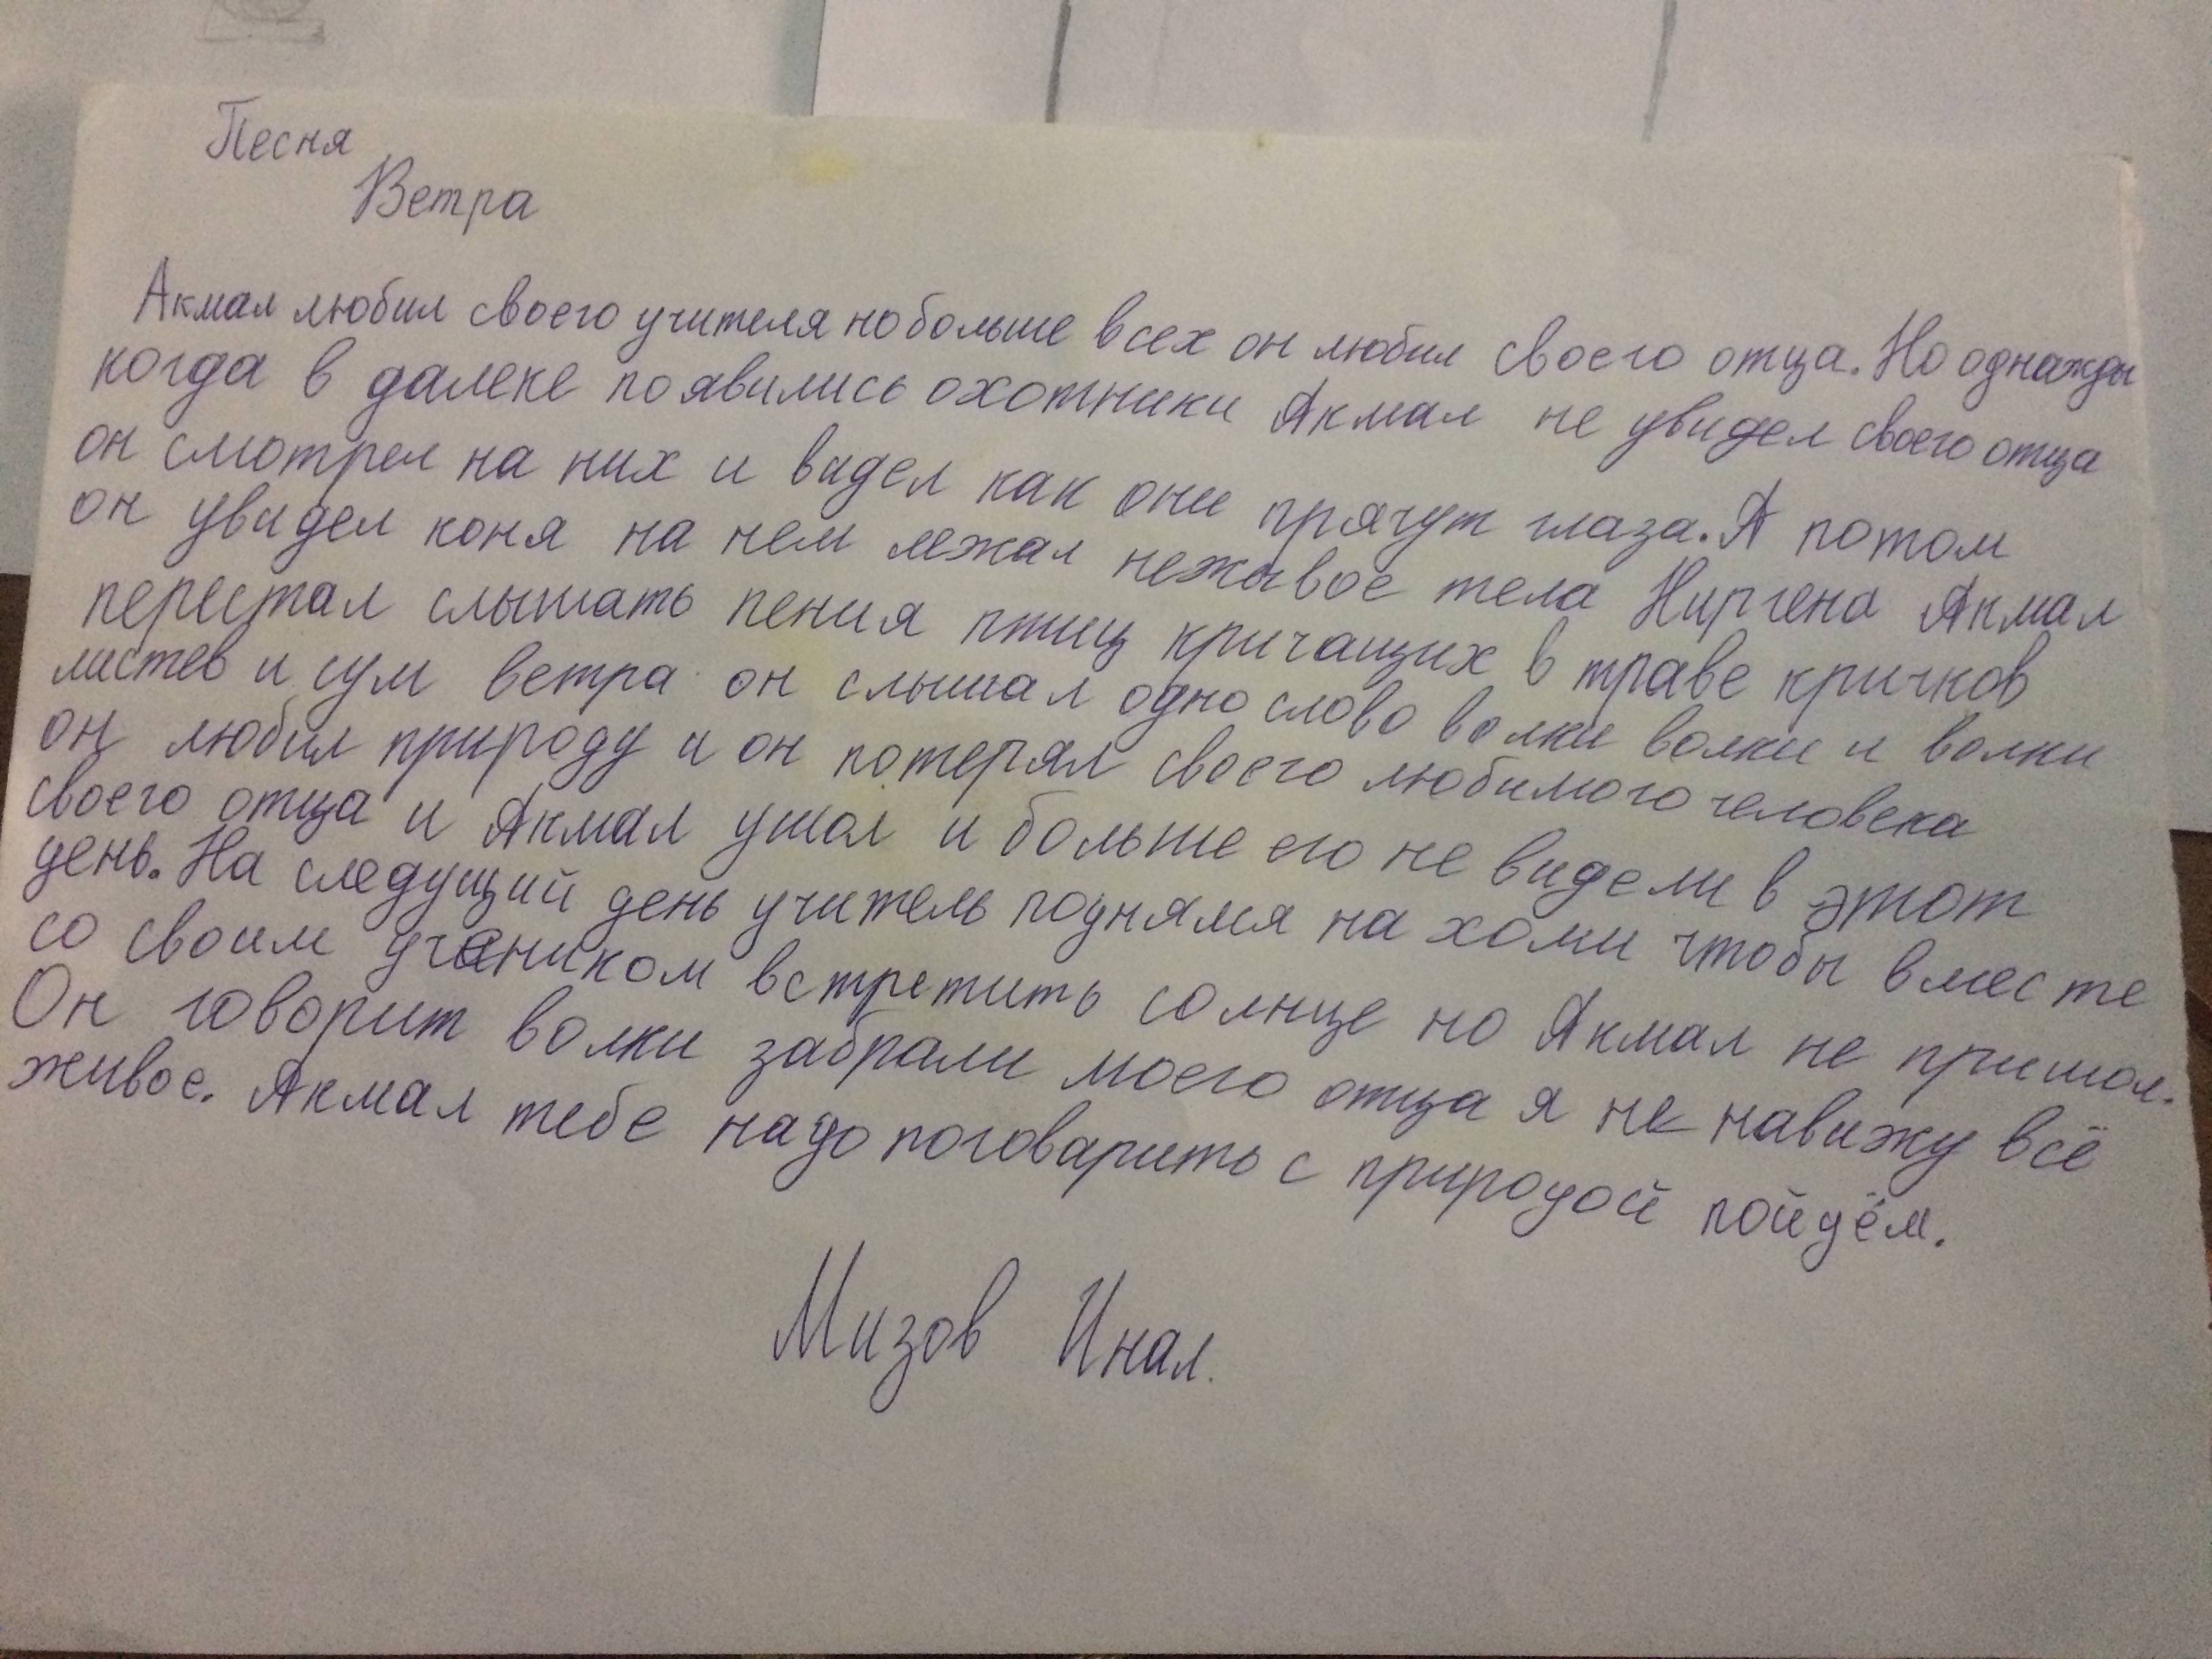 Песня
Ветра
Акмал любил своего учителя но больше всех он любил своего отца. Но однажды
когда в далеке появились охотники Акмал не увидел своего отца
он смотрел на них и видел как они прячут глаза. А потом
он увидел коня на нем лежал неживое тела Ниргена Акмал
перестал слышать пения птиц кричащих в траве кричков
листев и шум ветра он слышал одно слово волки волки и волки
он любил природу и он потерял своего любимого человека
своего отца и Акмал ушол и больше его не видели в этот
день. На следущий день учитель поднялся на холм чтобы вместе
со своим учеником встретить солнце но Акмал не пришол.
Он говорит волки забрали моего отца я не навижу всё
живое. Акмал тебе надо поговарить с природой пойдём.
Мизов Инал.